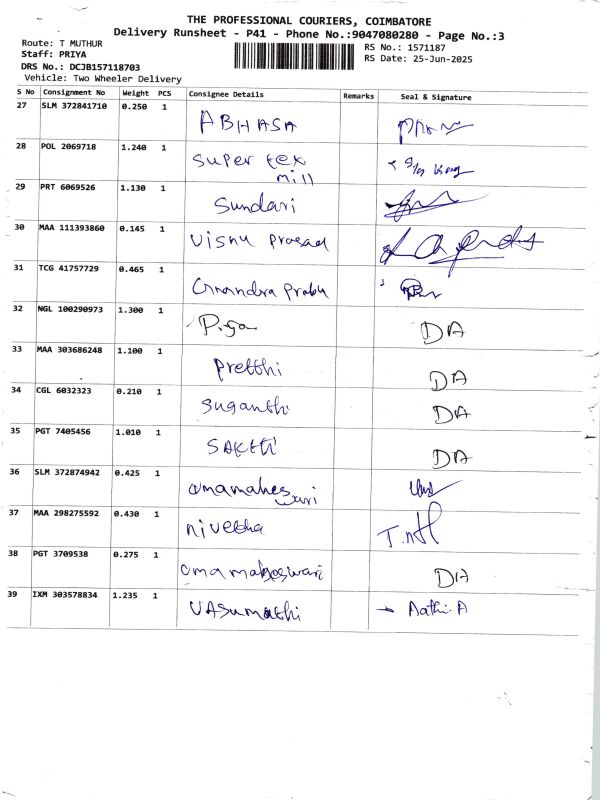 THE PROFESSIONAL COURIERS, COIMBATORE
Delivery Runsheet - P41 - Phone No.:9047080280 - Page No.:3
Route: T MUTHUR
RS No.: 1571187
Staff: PRIYA
RS Date: 25-Jun-2025
DRS No.: DCJB157118703
Vehicle: Two Wheeler Delivery
S No Consignment No Weight PCS Consignee Details Remarks Seal & Signature
27 SLM 372841710 0.250 1 ABHASA
28 POL 2069718 1.240 1 super tex
mill
29 PRT 6069526 1.130 1 Sundari
30 MAA 111393860 0.145 1 Visnu prasad
31 TCG 41757729 0.465 1 Chandra prabu
32 NGL 100290973 1.300 1 DA
33 MAA 303686248 1.100 1 preethi DA
34 CGL 6032323 0.210 1 suganthi DA
35 PGT 7405456 1.010 1 SAKthi DA
36 SLM 372874942 0.425 1 umamahes
wari
37 MAA 298275592 0.430 1 nivedha
38 PGT 3709538 0.275 1 uma maheswari DA
39 IXM 303578834 1.235 1 VASumathi Aathi.A